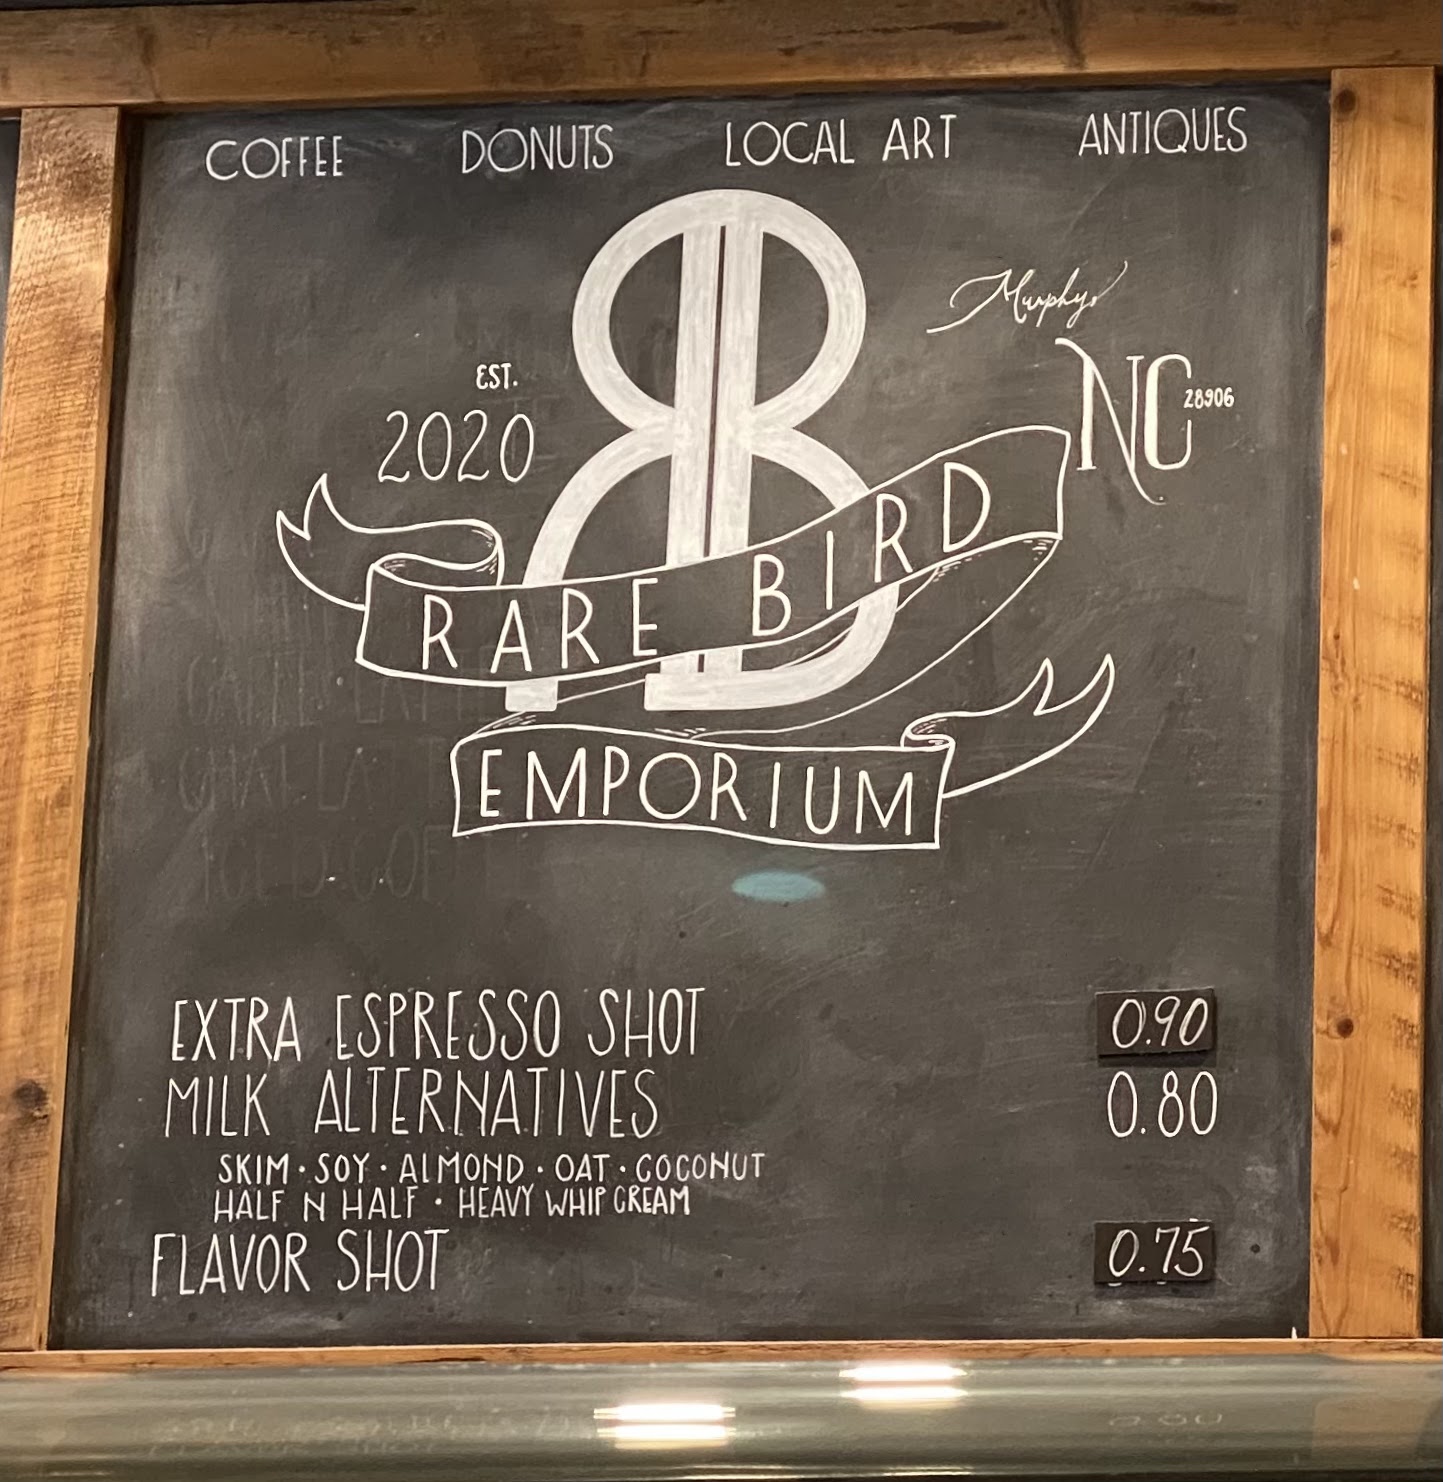 COFFEE DONUTS LOCAL ART ANTIQUES
Murphy,
NC 28906
EST.
2020
RARE BIRD
EMPORIUM
EXTRA ESPRESSO SHOT 0.90
MILK ALTERNATIVES 0.80
SKIM · SOY · ALMOND · OAT · COCONUT
HALF N HALF · HEAVY WHIP CREAM
FLAVOR SHOT 0.75